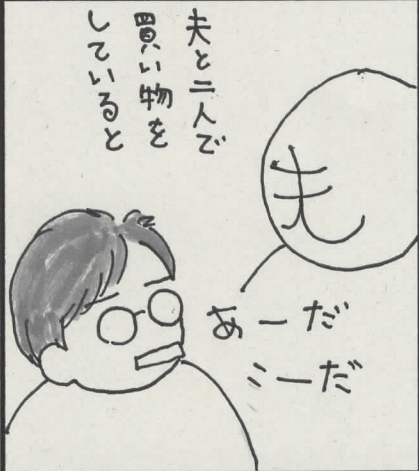 夫と二人で
買い物を
していると
夫
あーだ
こーだ